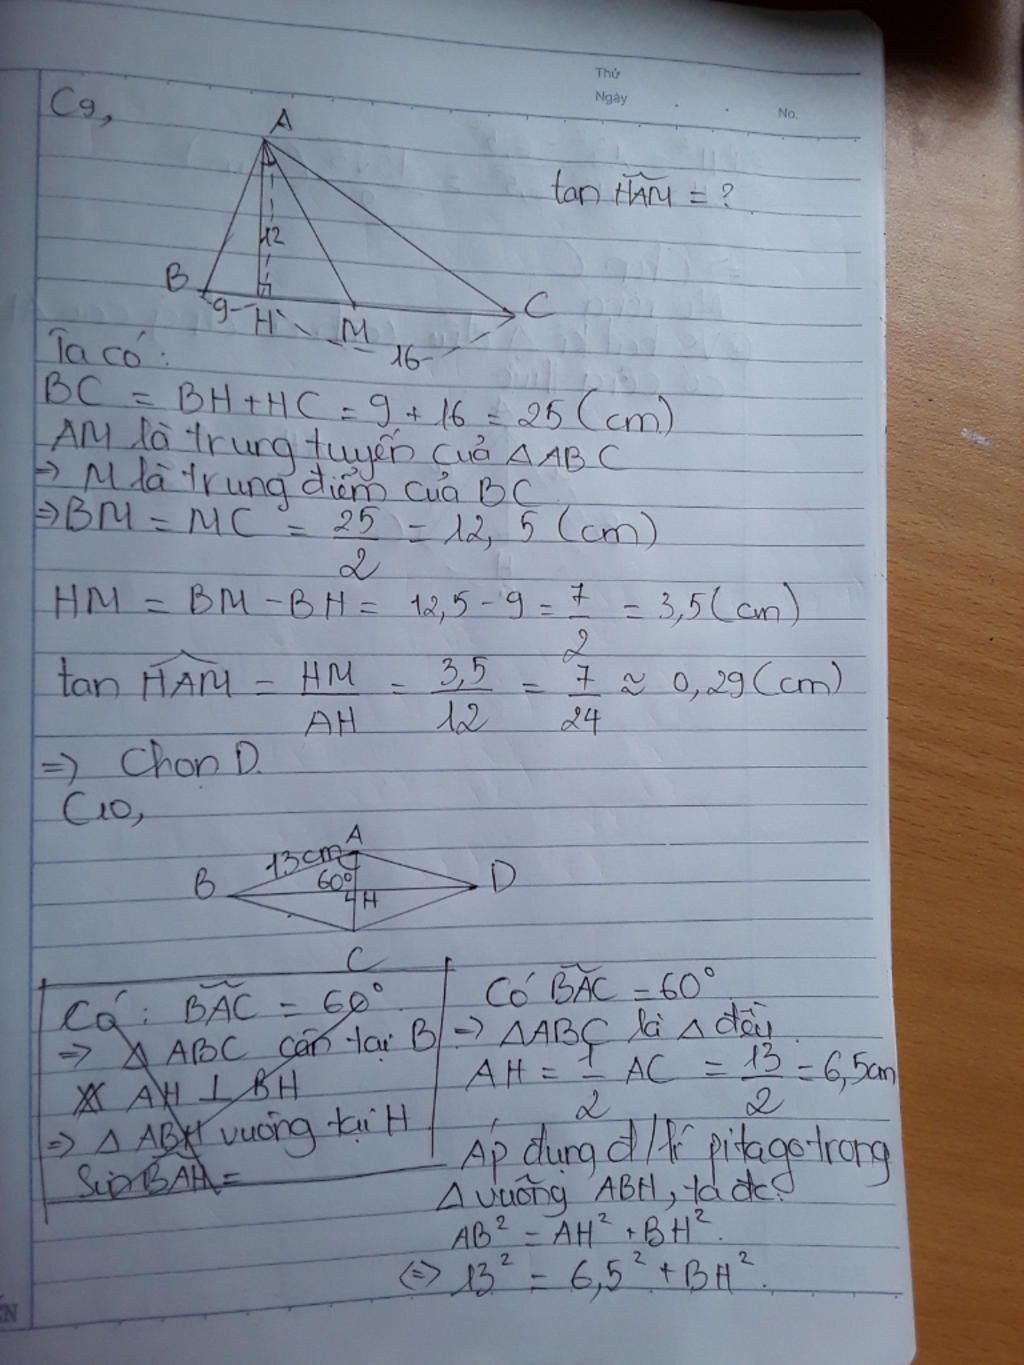 Thứ
Ngày
No.
C9,
A
tan HAM = ?
12
B
9
H
M
C
16
Ta có:
BC = BH + HC = 9 + 16 = 25 (cm)
AM là trung tuyến của △ABC
⇒ M là trung điểm của BC
⇒ BM = MC = 25/2 = 12,5 (cm)
HM = BM - BH = 12,5 - 9 = 7/2 = 3,5 (cm)
tan HAM = HM/AH = 3,5/12 = 7/24 ≈ 0,29 (cm)
⇒ Chọn D.
C10,
A
13cm
B
60°
H
D
C
Có: BAC = 60°
⇒ △ ABC cân tại B
AH ⊥ BH
⇒ △ ABH vuông tại H
Sin BAH =
Có BAC = 60°
⇒ △ABC là △ đều
AH = 1/2 AC = 13/2 = 6,5cm
Áp dụng đ/lí pitago trong
△ vuông ABH, ta đc:
AB² = AH² + BH².
⇔ 13² = 6,5² + BH².